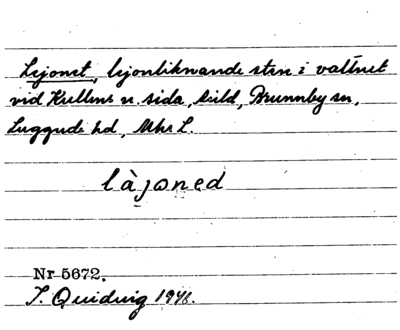 Lejonet, lejonliknande sten i vattnet
vid Kullens n. sida, Arild, Brunnby sn,
Luggude hd, Mhs L.
làjoned
Nr 5672.
I. Quidvig 1946.